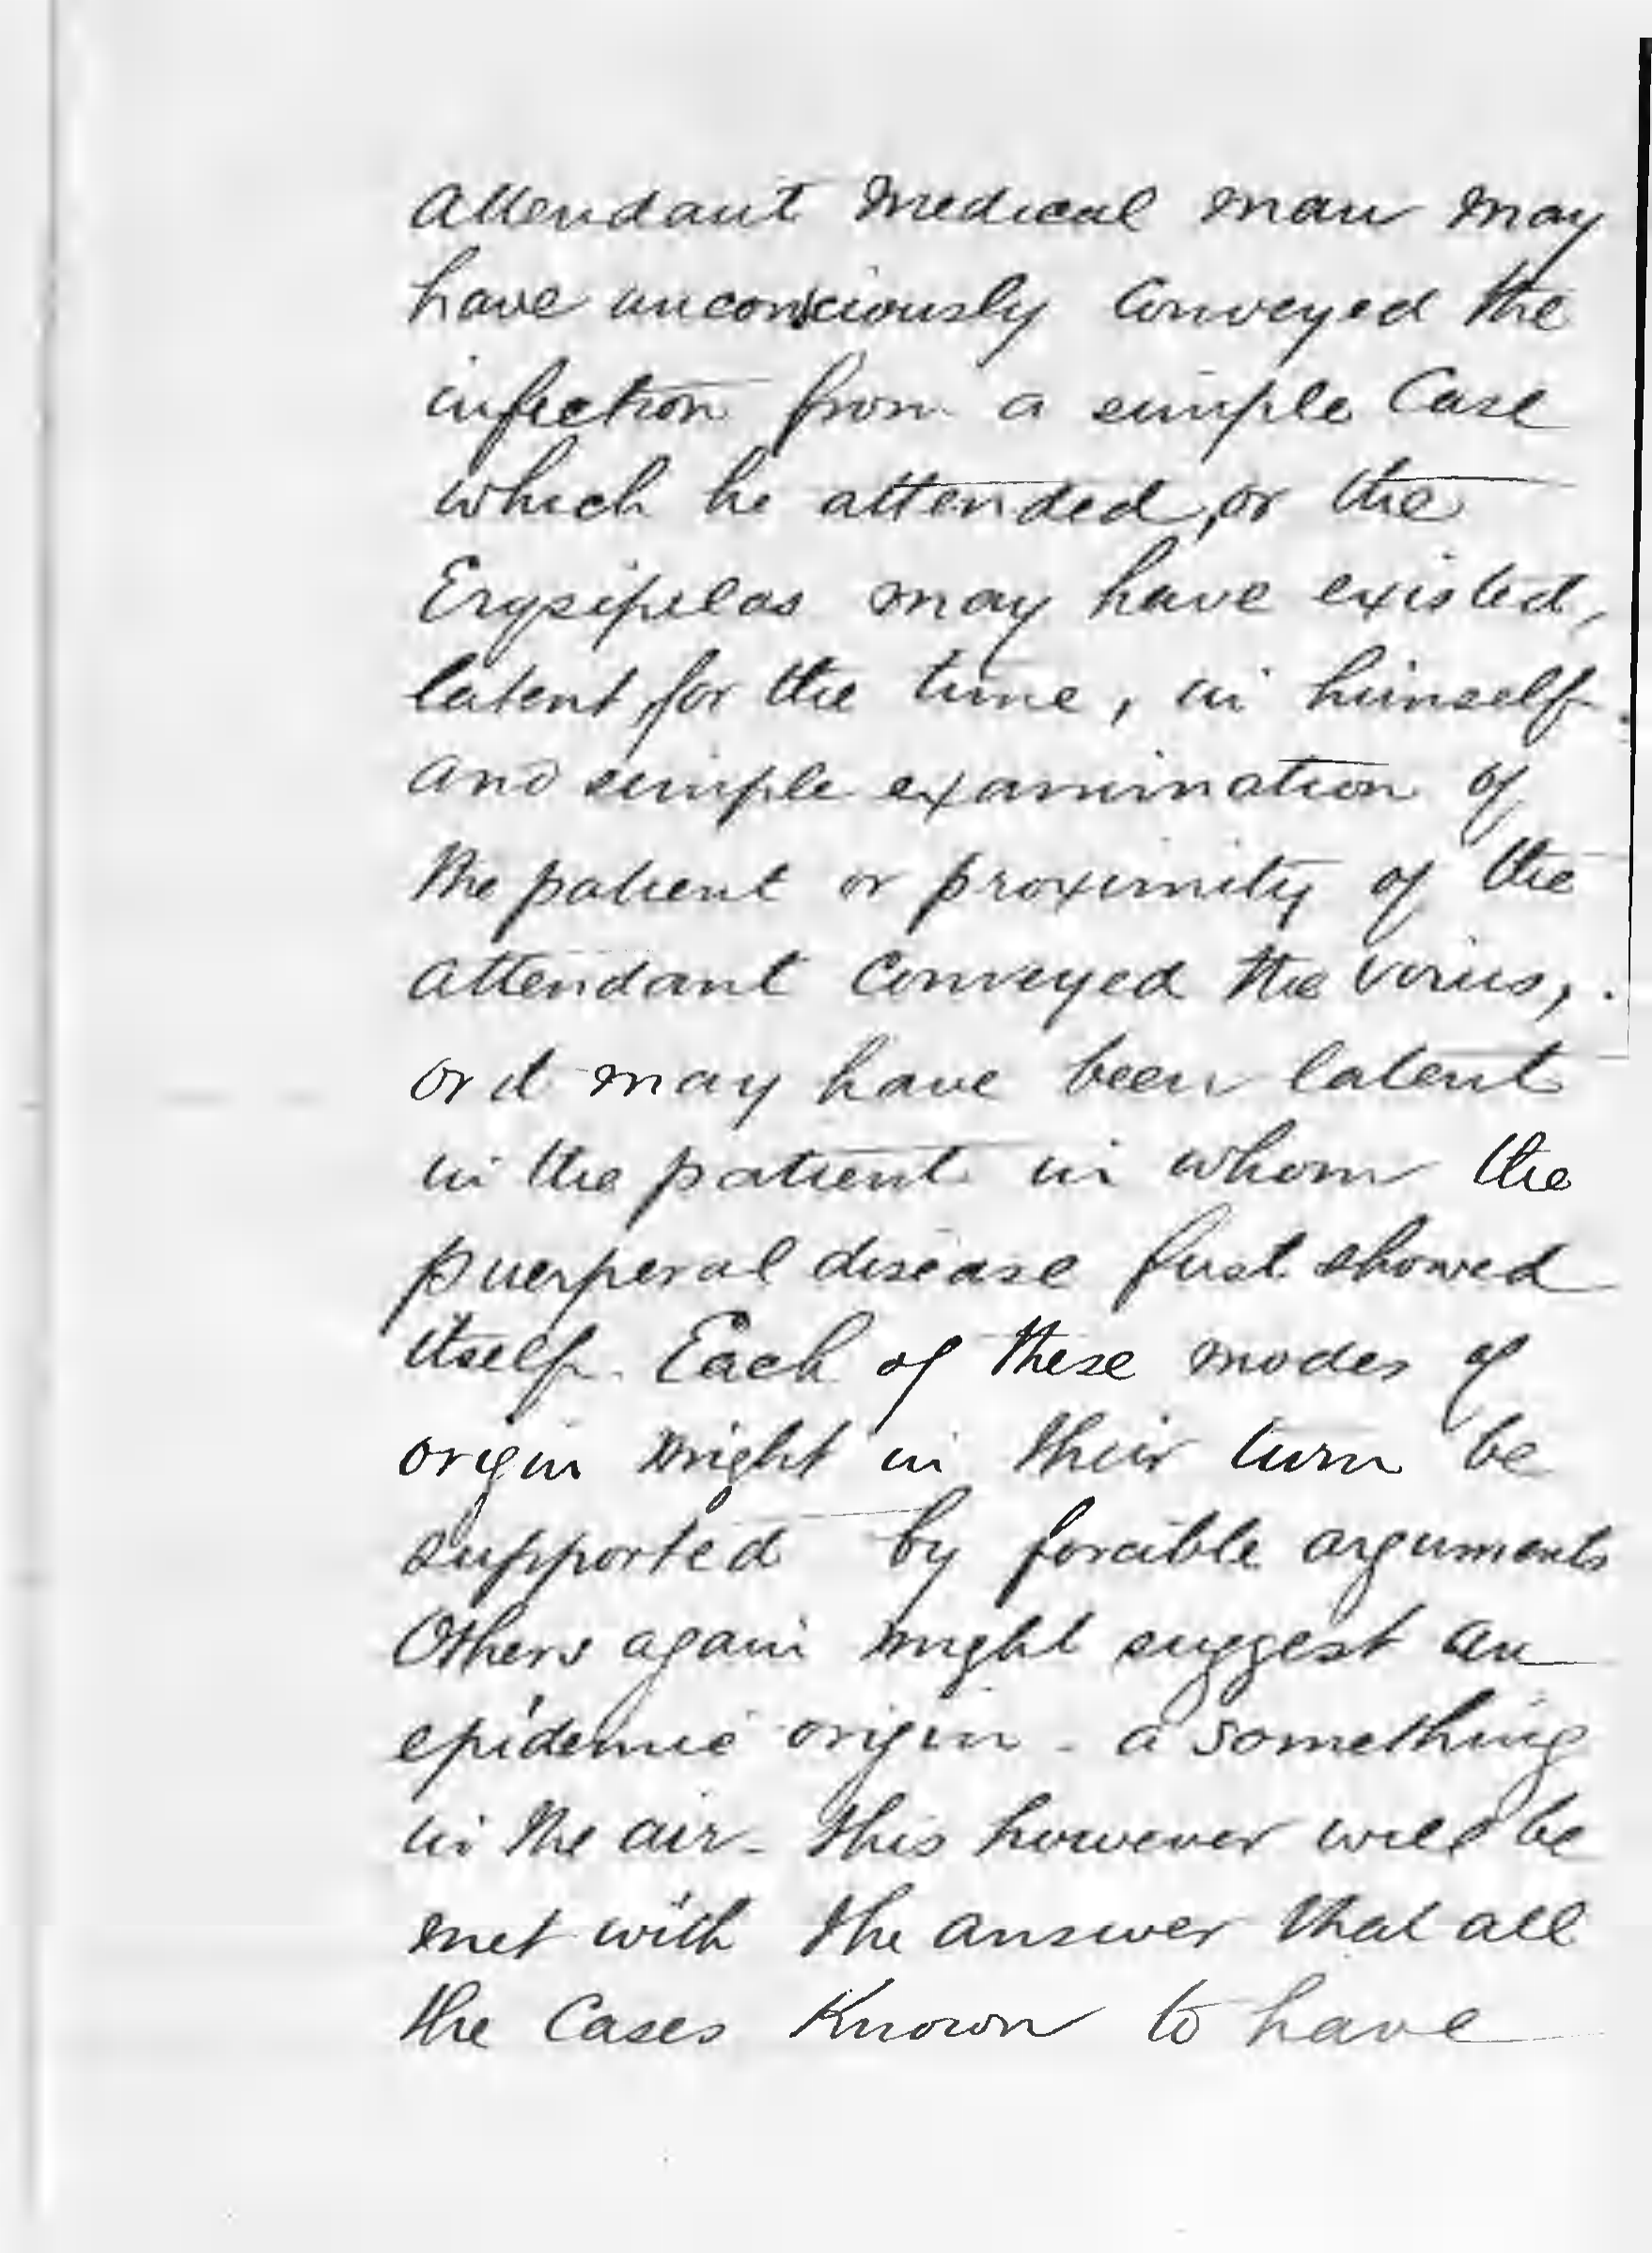 attendant medical man may
have unconsciously conveyed the
infection from a simple Case
which he attended, or the
Erysipelas may have existed,
latent for the time, in himself.
and simple examination of
the patient or proximity of the
attendant conveyed the virus,.
or it may have been latent
in the patient in whom the
puerperal disease first showed
itself. Each of these modes of
origin might in their turn be
supported by forcible arguments
Others again might suggest an
epidemic origin - a something
in the air - this however will be
met with the answer that all
the Cases Known to have